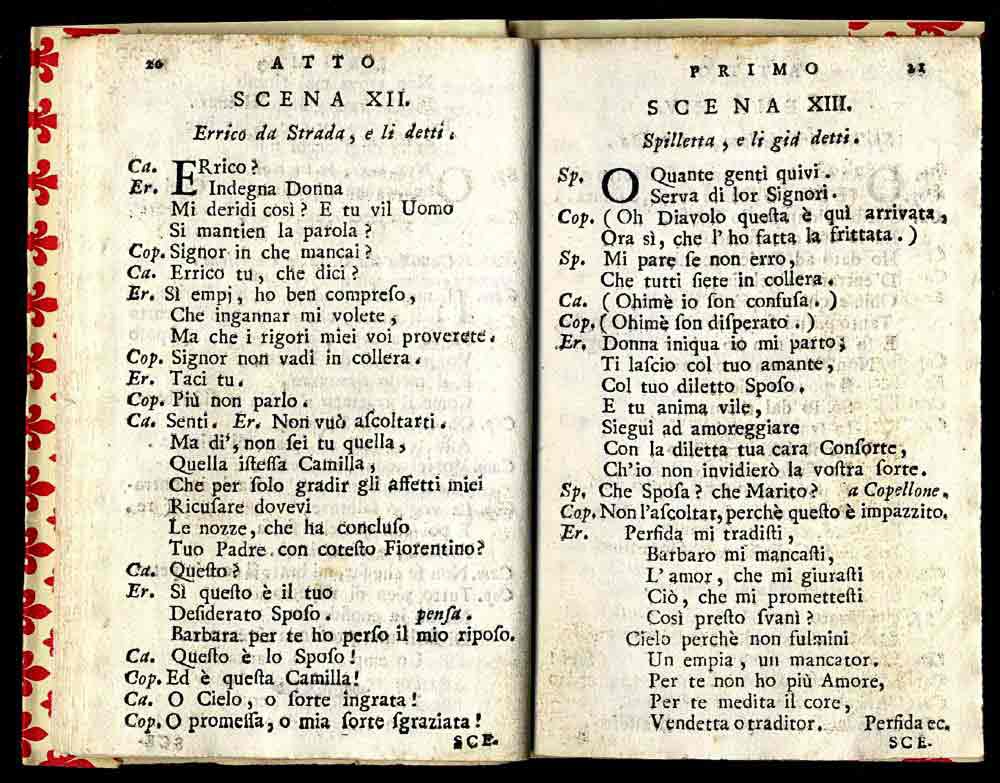 20 ATTO
SCENA XII.
Errico da Strada, e li detti.
Ca. ERrico?
Er. Indegna Donna
Mi deridi così? E tu vil Uomo
Si mantien la parola?
Cop. Signor in che mancai?
Ca. Errico tu, che dici?
Er. Sì empj, ho ben compreſo,
Che ingannar mi volete,
Ma che i rigori miei voi proverete.
Cop. Signor non vadi in collera.
Er. Taci tu.
Cop. Più non parlo.
Ca. Senti. Er. Non vuò aſcoltarti.
Ma di', non ſei tu quella,
Quella iſteſſa Camilla,
Che per ſolo gradir gli affetti miei
Ricuſare dovevi
Le nozze, che ha concluſo
Tuo Padre con coteſto Fiorentino?
Ca. Queſto?
Er. Sì queſto è il tuo
Deſiderato Spoſo. penſa.
Barbara per te ho perſo il mio ripoſo.
Ca. Queſto è lo Spoſo!
Cop. Ed è queſta Camilla!
Ca. O Cielo, o ſorte ingrata!
Cop. O promeſſa, o mia ſorte ſgraziata!
SCE-
PRIMO 21
SCENA XIII.
Spilletta, e li già detti.
Sp. O Quante genti quivi.
Serva di lor Signori.
Cop. (Oh Diavolo queſta è quì arrivata,
Ora sì, che l'ho fatta la frittata.)
Sp. Mi pare ſe non erro,
Che tutti ſiete in collera.
Ca. (Ohimè io ſon confuſa.)
Cop. (Ohimè ſon diſperato.)
Er. Donna iniqua io mi parto;
Ti laſcio col tuo amante,
Col tuo diletto Spoſo.
E tu anima vile,
Siegui ad amoreggiare
Con la diletta tua cara Conſorte,
Ch'io non invidierò la voſtra ſorte.
Sp. Che Spoſa? che Marito? a Copellone.
Cop. Non l'aſcoltar, perchè queſto è impazzito.
Er. Perfida mi tradiſti,
Barbaro mi mancaſti,
L'amor, che mi giuraſti
Ciò, che mi prometteſti
Così preſto ſvanì?
Cielo perchè non fulmini
Un empia, un mancator.
Per te non ho più Amore,
Per te medita il core,
Vendetta o traditor. Perfida ec.
SCE-